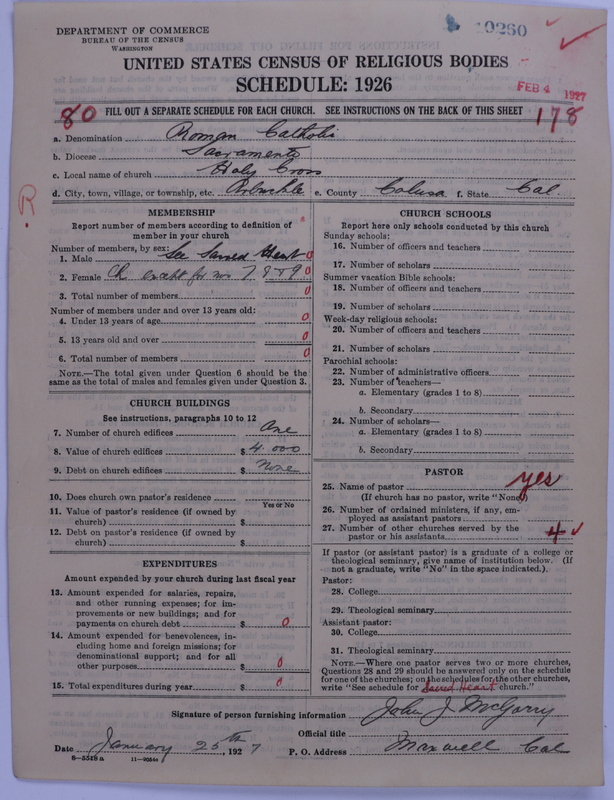 DEPARTMENT OF COMMERCE
BUREAU OF THE CENSUS
WASHINGTON
10260
UNITED STATES CENSUS OF RELIGIOUS BODIES
SCHEDULE: 1926
FEB 4 1927
80 FILL OUT A SEPARATE SCHEDULE FOR EACH CHURCH. SEE INSTRUCTIONS ON THE BACK OF THIS SHEET 178
a. Denomination Roman Catholic
b. Diocese Sacramento
c. Local name of church Holy Cross
d. City, town, village, or township, etc. e. County Colusa f. State Cal
R
MEMBERSHIP
Report number of members according to definition of
member in your church
Number of members, by sex:
1. Male See Sacred Heart 0
2. Female Ch except for nos 7 8 & 9 0
3. Total number of members 0
Number of members under and over 13 years old:
4. Under 13 years of age 0
5. 13 years old and over 0
6. Total number of members 0
NOTE.—The total given under Question 6 should be
same as the total of males and females given under Question 3.
CHURCH BUILDINGS
See instructions, paragraphs 10 to 12
7. Number of church edifices One
8. Value of church edifices $ 4.000
9. Debt on church edifices $ None
10. Does church own pastor's residence
Yes or No
11. Value of pastor's residence (if owned by
church) $
12. Debt on pastor's residence (if owned by
church) $
EXPENDITURES
Amount expended by your church during last fiscal year
13. Amount expended for salaries, repairs,
and other running expenses; for im-
provements or new buildings; and for
payments on church debt $ 0
14. Amount expended for benevolences, in-
cluding home and foreign missions; for
denominational support; and for all
other purposes $ 0
15. Total expenditures during year $ 0
CHURCH SCHOOLS
Report here only schools conducted by this church
Sunday schools:
16. Number of officers and teachers
17. Number of scholars
Summer vacation Bible schools:
18. Number of officers and teachers
19. Number of scholars
Week-day religious schools:
20. Number of officers and teachers
21. Number of scholars
Parochial schools:
22. Number of administrative officers
23. Number of teachers—
a. Elementary (grades 1 to 8)
b. Secondary
24. Number of scholars—
a. Elementary (grades 1 to 8)
b. Secondary
PASTOR
25. Name of pastor yes
(If church has no pastor, write "None")
26. Number of ordained ministers, if any, em-
ployed as assistant pastors
27. Number of other churches served by the
pastor or his assistants 4
If pastor (or assistant pastor) is a graduate of a college or
theological seminary, give name of institution below. (If
not a graduate, write "No" in the space indicated.)
Pastor:
28. College
29. Theological seminary
Assistant pastor:
30. College
31. Theological seminary
NOTE.—Where one pastor serves two or more churches,
Questions 28 and 29 should be answered only on the schedule
for one of the churches; on the schedules for the other churches,
write "See schedule for Sacred Heart church."
Signature of person furnishing information John J McGarry
Official title
Date January 25th, 1927 P. O. Address Maxwell Cal
8—5518a 11—9034a